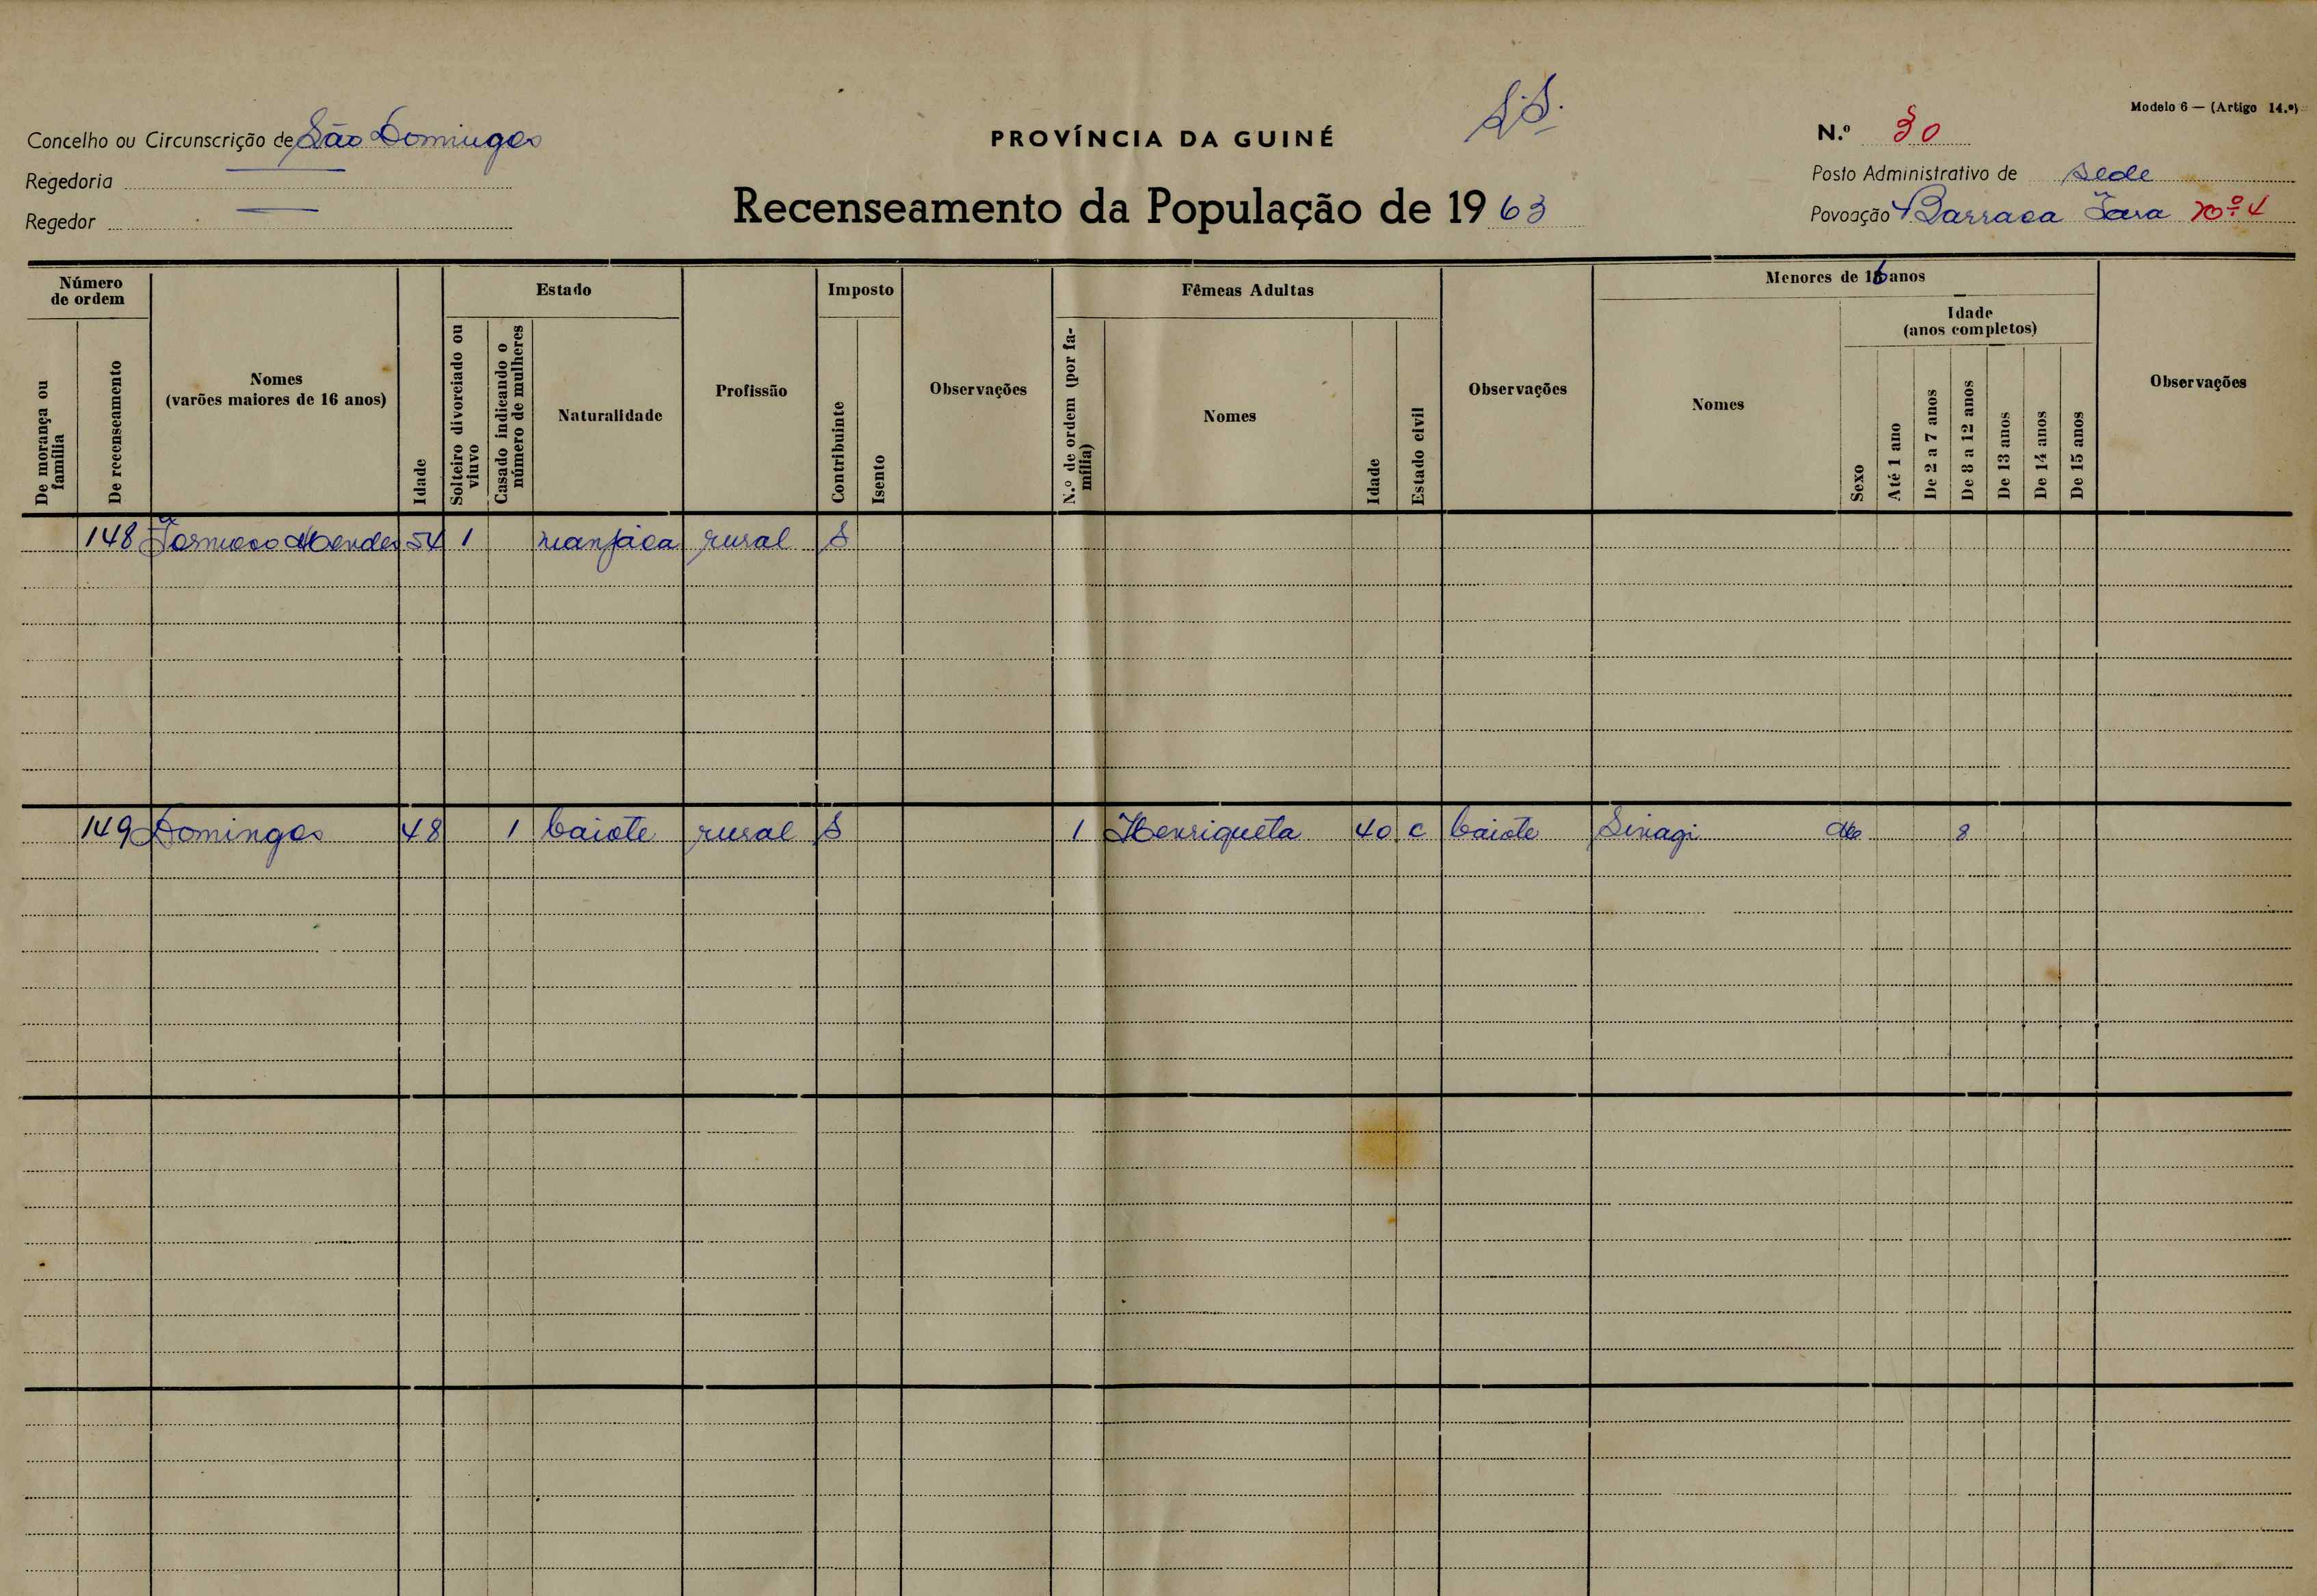 S.S.
Modelo 6 — (Artigo 14.º)
Concelho ou Circunscrição de São Domingos
PROVÍNCIA DA GUINÉ
N.º 30
Regedoria
Posto Administrativo de sede
Regedor
Recenseamento da População de 1963
Povoação Barraca nº 4
Número de ordem
Estado
Imposto
Fêmeas Adultas
Menores de 16 anos
Idade
(anos completos)
De morança ou família
De recenseamento
Nomes
(varões maiores de 16 anos)
Idade
Solteiro divorciado ou viuvo
Casado indicando o número de mulheres
Naturalidade
Profissão
Contribuinte
Isento
Observações
N.º de ordem (por família)
Nomes
Idade
Estado civil
Observações
Nomes
Sexo
Até 1 ano
De 2 a 7 anos
De 8 a 12 anos
De 13 anos
De 14 anos
De 15 anos
Observações
148 Mendes 54 1 manjaca rural S
149 Domingos 48 1 baiote rural S 1 Henriqueta 40 c baiote Sinagi M 8